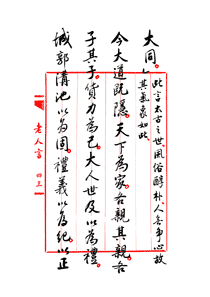 大同。此言太古之世風俗醇朴人無爭心故
其氣象如此
今大道既隱天下為家各親其親各
子其子貨力為己大人世及以為禮
城郭溝池以為固禮義以為紀以正
老人言 四三